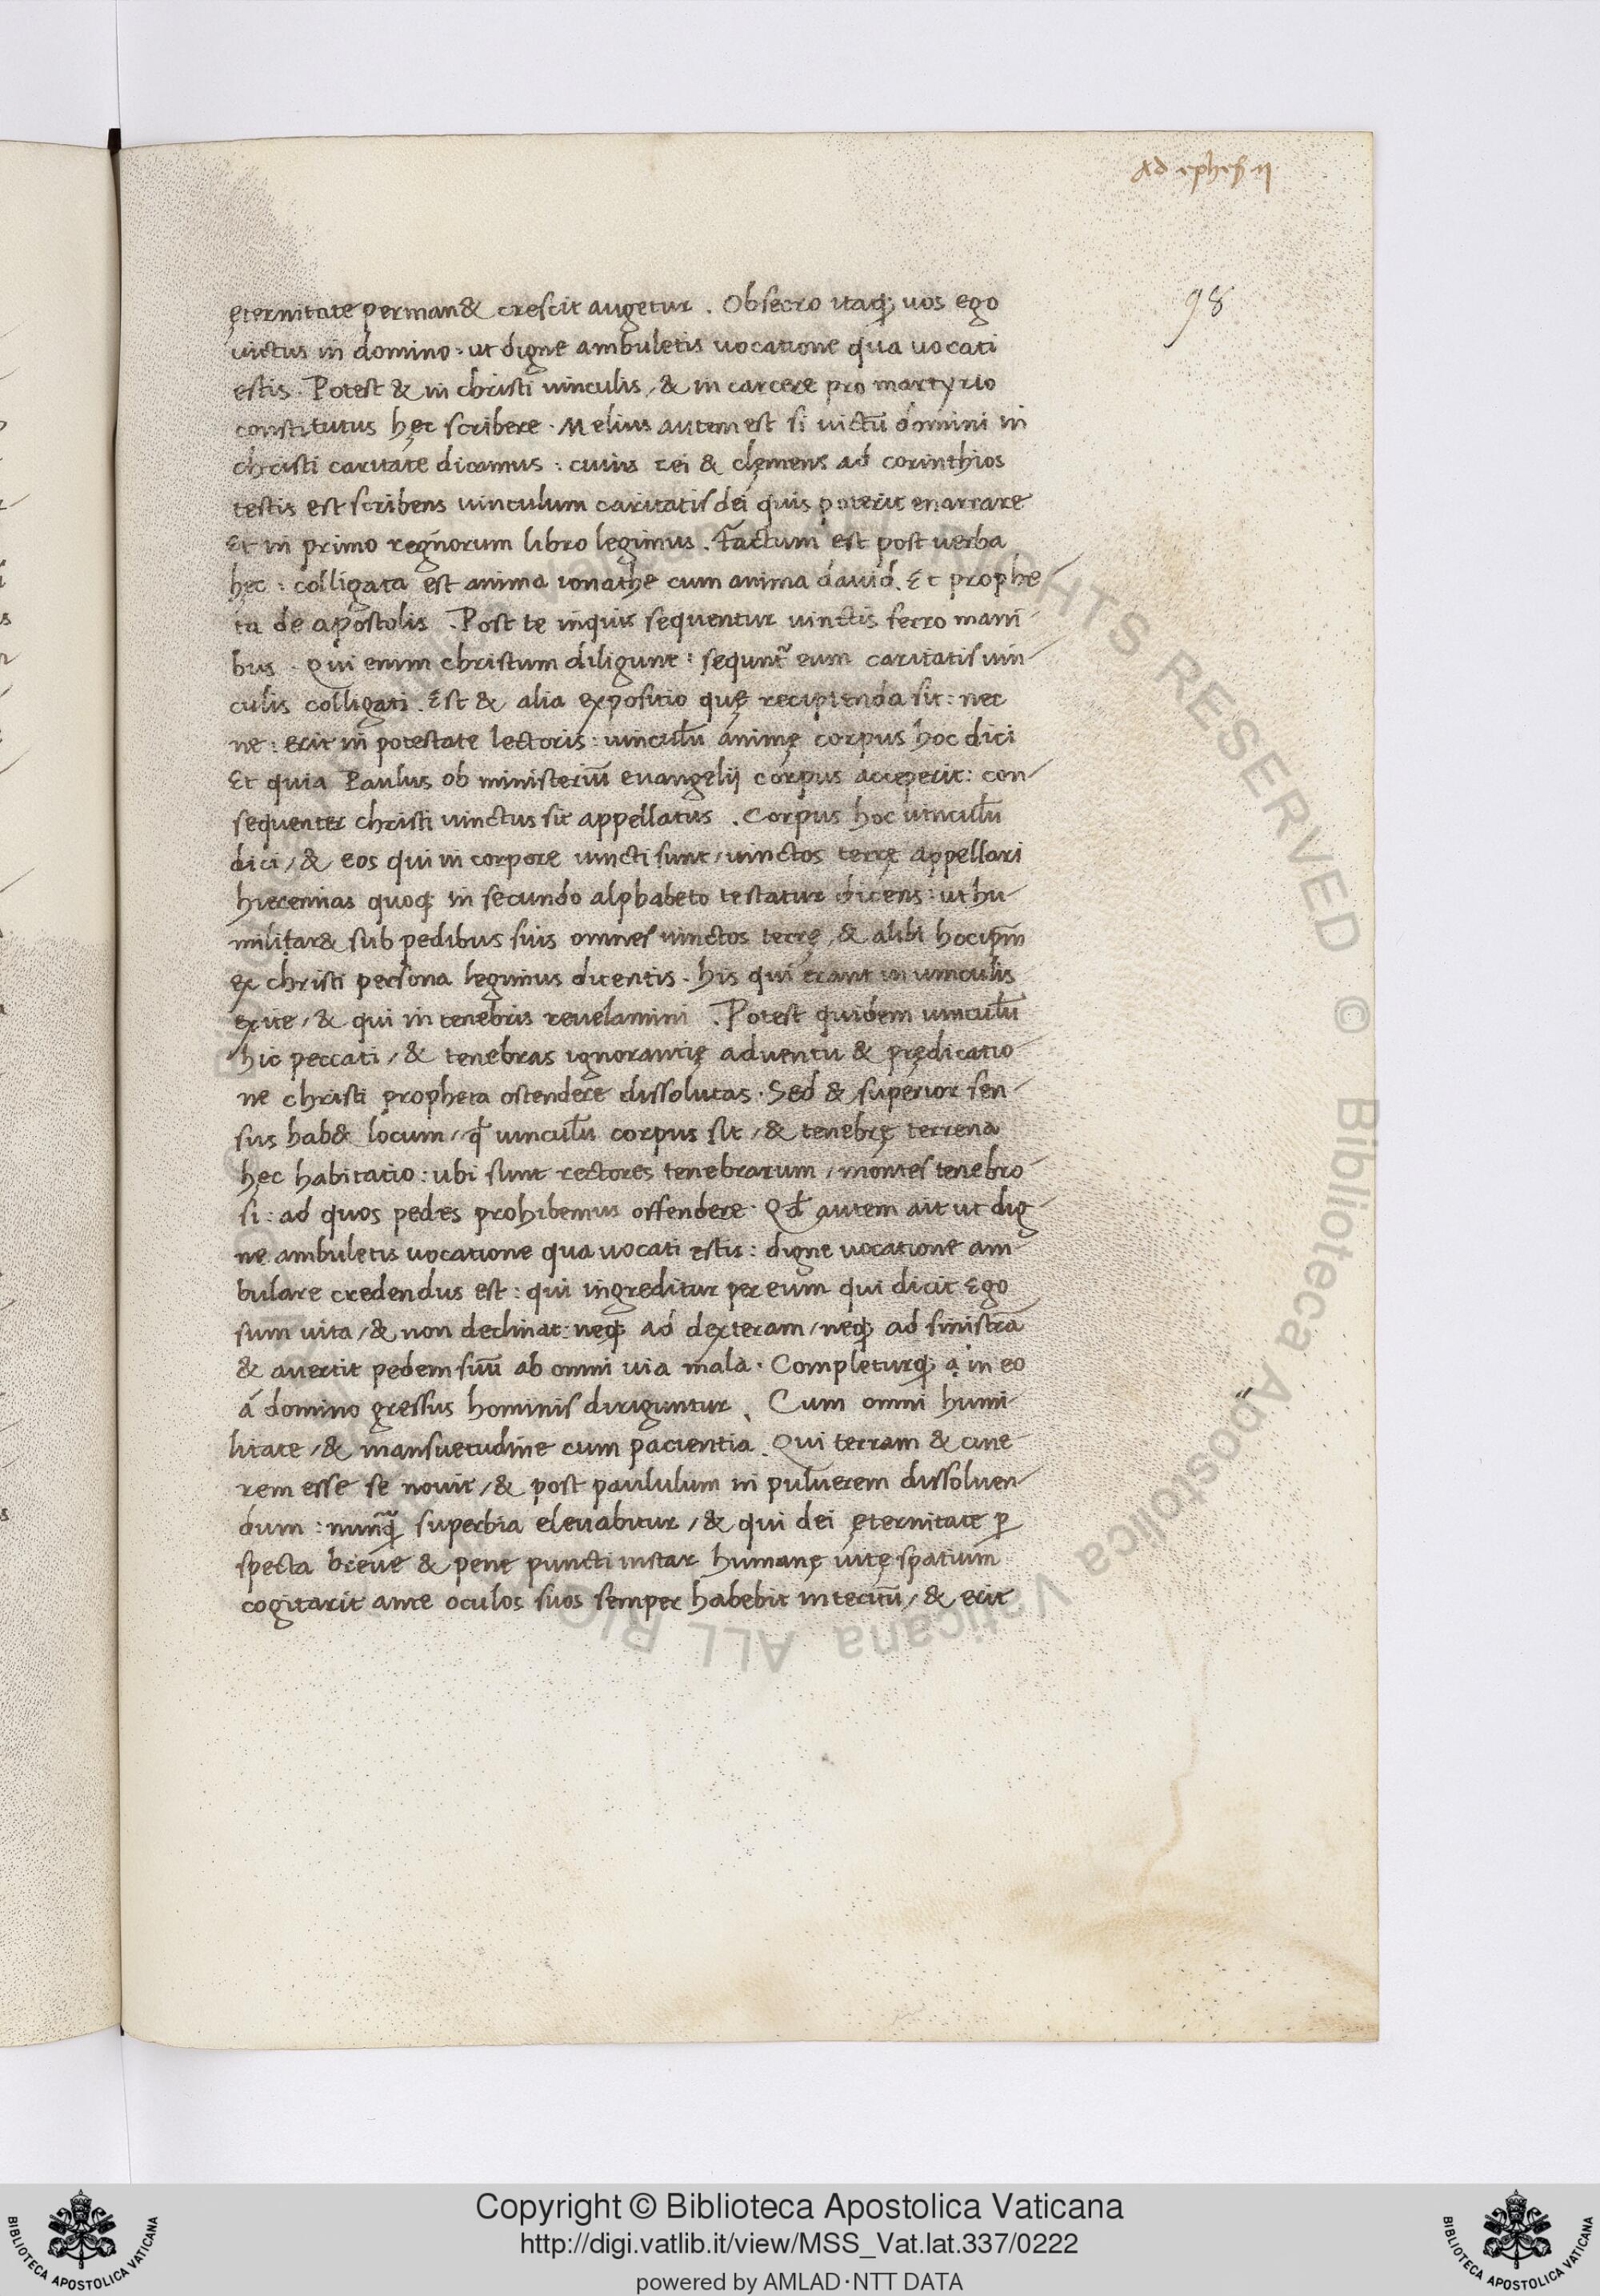 Ad ephes ij
98
ęternitate perman& crescit augetur. Obsecro itaq; uos ego
uictus in domino: ut digne ambuletis uocatione qua uocati
estis. Potest & in christi uinculis, & in carcere pro martyrio
constitutus hęc scribere. Melius autem est si uictū domini in
christi caritate dicamus: cuius rei & clęmens ad corinthios
testis est scribens uinculum caritatis dei quis poterit enarrare
Et in primo regnorum libro legimus. Factum est post uerba
hęc: colligata est anima ionathe cum anima dauid. Et prophe/
ta de apostolis. Post te inquit sequentur uinctis ferro mani/
bus. Qui enim christum diligunt: sequnt᷑ eum caritatis uin/
culis colligati. Est & alia expositio quę recipienda sit: nec
ne: erit in potestate lectoris: uinculū animę corpus hoc dici
Et quia Paulus ob ministeriū euangelij corpus acceperit: con/
sequenter christi uinctus sit appellatus. Corpus hoc uinculū
dici, & eos qui in corpore uincti sunt, uinctos terrę appellari
hieremias quoq; in secundo alphabeto testatur dicens: ut hu/
militar& sub pedibus suis omnes uinctos terrę, & alibi hoc ip̄m
ex christi persona legimus dicentis. his qui erant in uinculis
exite, & qui in tenebris reuelamini. Potest quidem uinculū
hic peccati, & tenebras ignorantię aduentu & prędicatio/
ne christi propheta ostendere dissolutas. Sed & superior sen/
sus hab& locum, qđ uinculū corpus sit, & tenebrę terrena
hęc habitatio: ubi sunt rectores tenebrarum, montes tenebro/
si: ad quos pedes prohibemus offendere. Qđ autem ait ut dig/
ne ambuletis uocatione qua uocati estis: digne uocatione am/
bulare credendus est: qui ingreditur per eum qui dicit Ego
sum uita, & non declinat: neq; ad dexteram, neq; ad sinistrā
& auertit pedem suū ab omni uia mala. Completurq; ạ in eo
á domino gressus hominis diriguntur. Cum omni humi/
litate, & mansuetudine cum pacientia. Qui terram & cine/
rem esse se nouit, & post paululum in puluerem dissoluen/
dum: nunq̄ superbia eleuabitur, & qui dei ęternitate ꝑ
specta breue & pene puncti instar humanę uitę spatium
cogitarit ante oculos suos semper habebit interitū, & erit
Copyright © Biblioteca Apostolica Vaticana
http://digi.vatlib.it/view/MSS_Vat.lat.337/0222
powered by AMLAD·NTT DATA
BIBLIOTECA APOSTOLICA VATICANA
BIBLIOTECA APOSTOLICA VATICANA